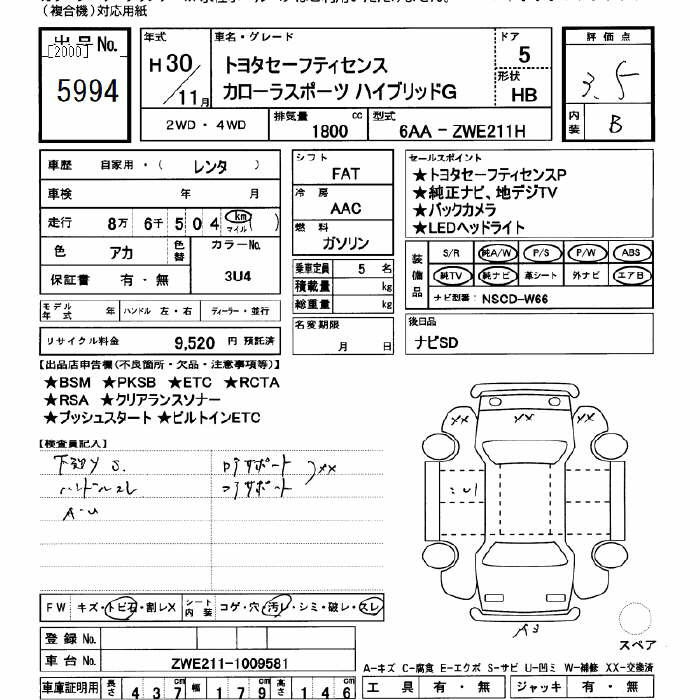 （複合機）対応用紙
出品No.
[2000]
5994
年式
H30/11月
車名・グレード
トヨタセーフティセンス
カローラスポーツ ハイブリッドG
ドア
5
形状
HB
評価点
3.5
内装
B
2WD・4WD
排気量
1800 cc
型式
6AA - ZWE211H
車歴 自家用・（ レンタ ）
車検 年 月
走行 8万 6千 5 0 4 km マイル ( )
色 アカ 色替 カラーNo.
保証書 有・無 3U4
モデル年式 年 ハンドル 左・右 ディーラー・並行
リサイクル料金 9,520 円 預託済
シフト
FAT
冷房
AAC
燃料
ガソリン
乗車定員 5 名
積載量 kg
総重量 kg
名変期限
月 日
セールスポイント
★トヨタセーフティセンスP
★純正ナビ、地デジTV
★バックカメラ
★LEDヘッドライト
装備品
S/R 純A/W P/S P/W ABS
純TV 純ナビ 革シート 外ナビ エアB
ナビ型番: NSCD-W66
後日品
ナビSD
【出品店申告欄(不良箇所・欠品・注意事項等)】
★BSM ★PKSB ★ETC ★RCTA
★RSA ★クリアランスソナー
★プッシュスタート ★ビルトインETC
【検査員記入】
下廻りS.
ハンドルスレ
A-U
ロアサポート
コアサポート
XX
XX
XX
XX
U1
A3
FW キズ・トビ石・割レX シート内装 コゲ・穴・汚レ・シミ・破レ・スレ
登録No.
車台No. ZWE211-1009581
車庫証明用 長さ 4 3 7 cm 幅 1 7 9 cm 高さ 1 4 6 cm
スペア
A-キズ C-腐食 E-エクボ S-サビ U-凹ミ W-補修 XX-交換済
工具 有・無 ジャッキ 有・無